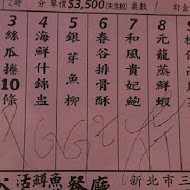 2時
分 單價$3,500(未含稅) 桌數
訂金
3 絲瓜捲10條
4 海鮮什錦盅
5 銀芽魚柳
6 春谷排骨酥
7 和風貴妃鮑
8 元龍蒸鮮蝦
活鱒魚餐廳
(新北市三